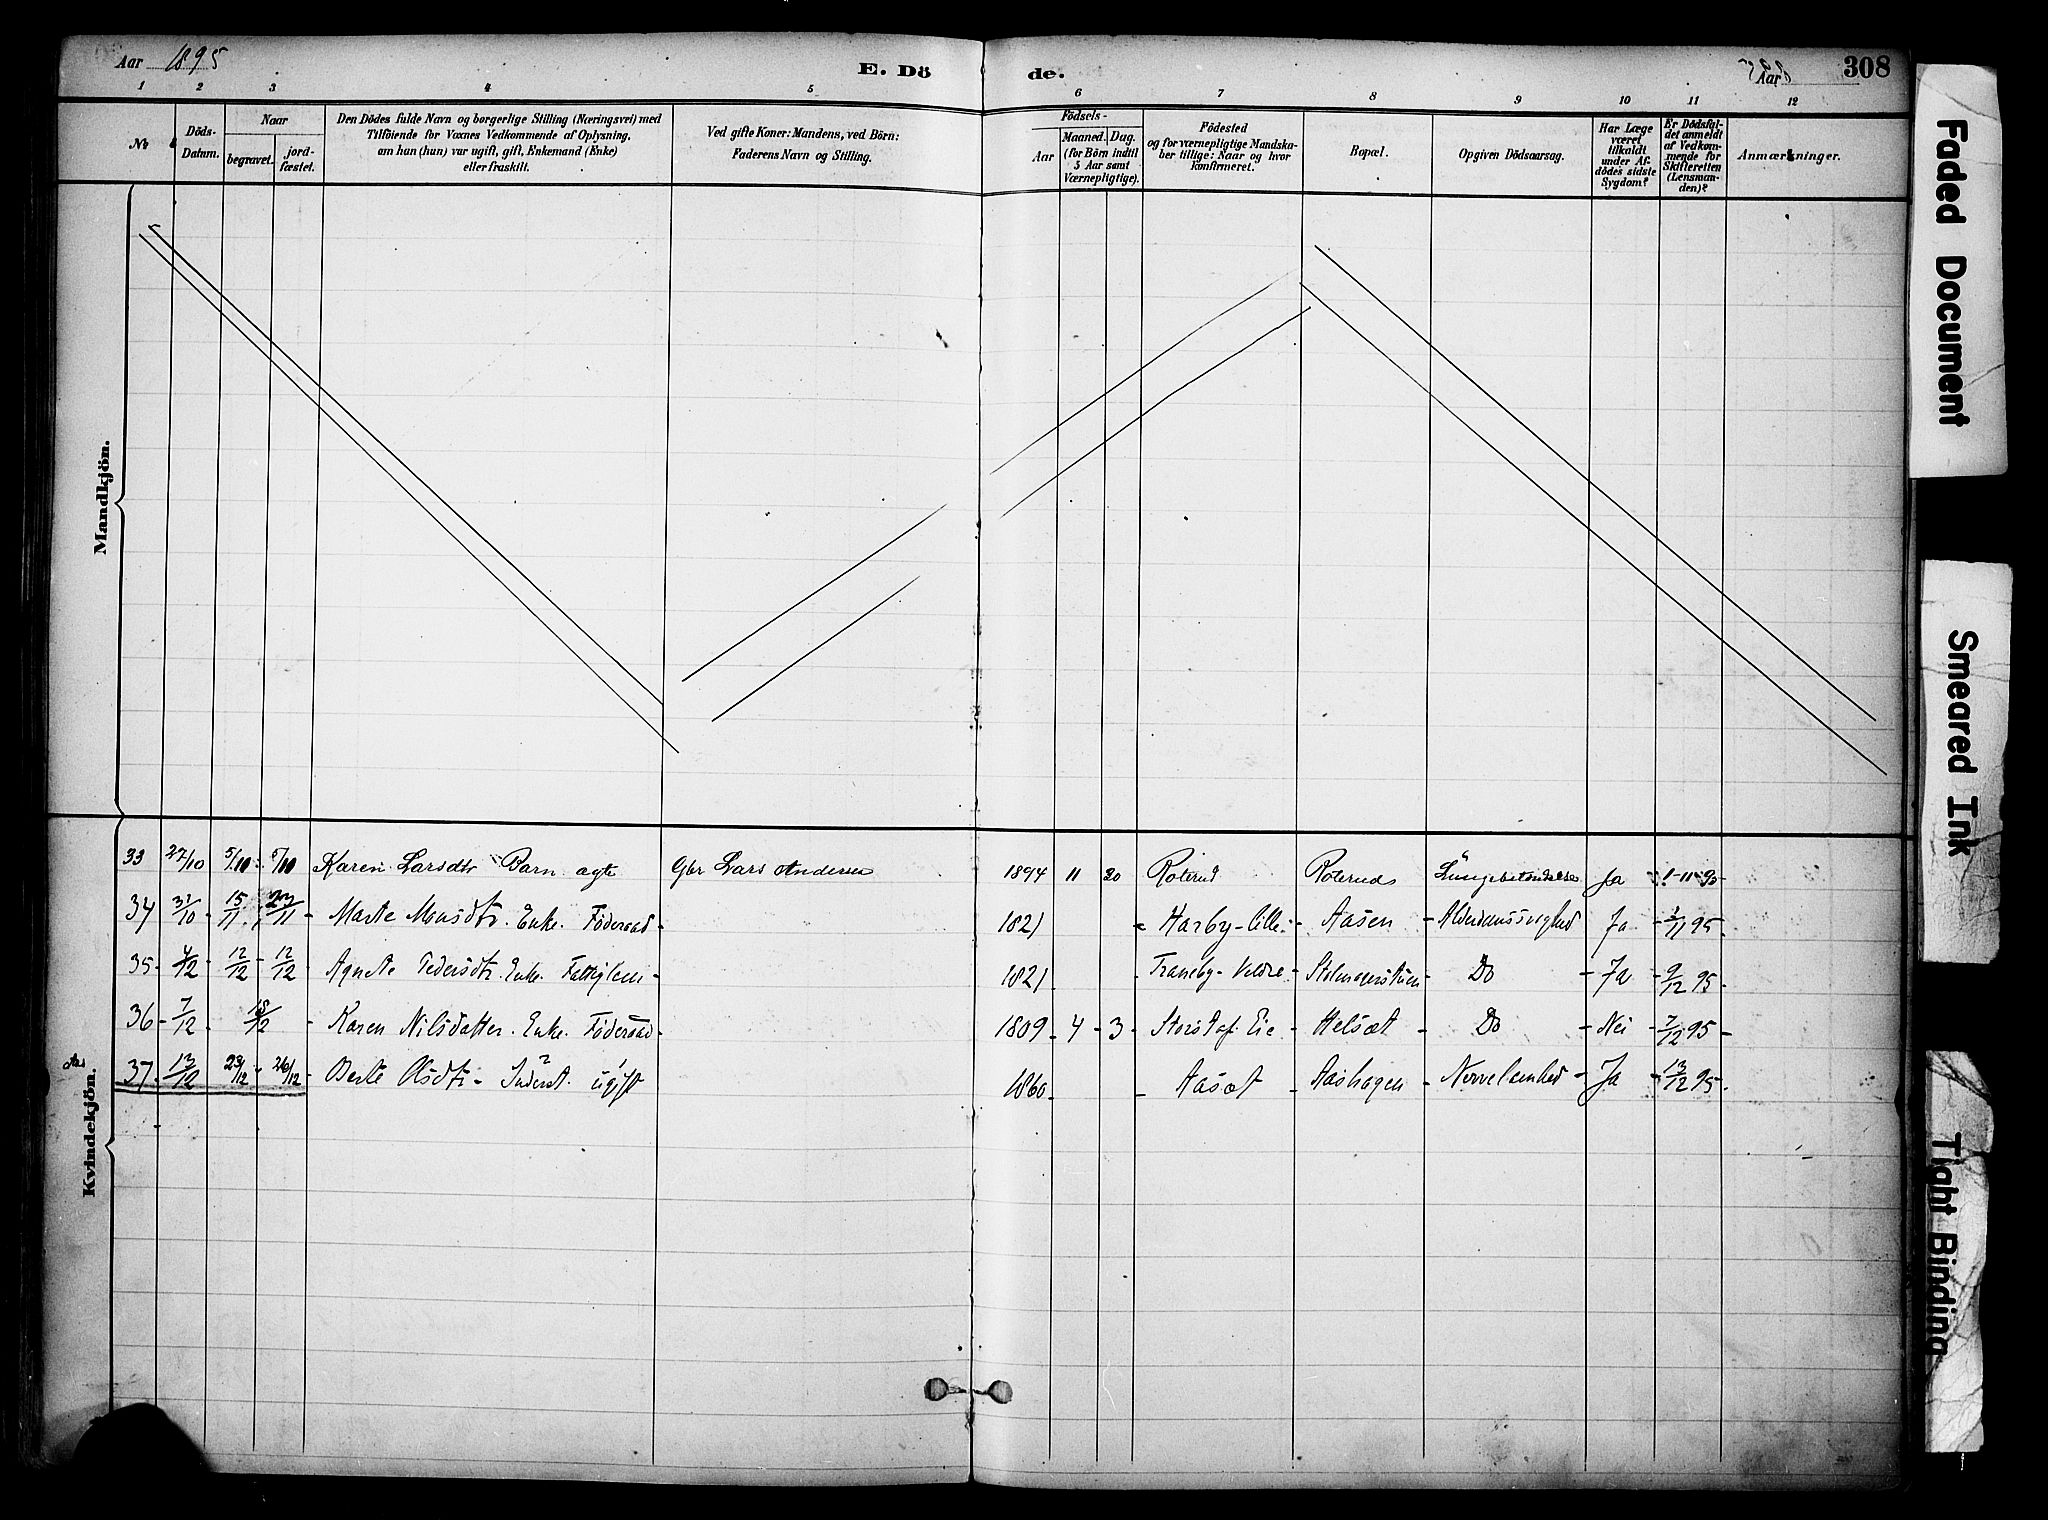 Aar 1895
E. Dö de.
Aar
308
1 2 3 4 5 6 7 8 9 10 11 12
No
Döds-
Datum.
Naar
begravet.
jord-
fæstet.
Den Dödes fulde Navn og borgerlige Stilling (Næringsvei) med
Tilföiende for Voxnes Vedkommende af Oplysning,
om han (hun) var ugift, gift, Enkemand (Enke)
eller fraskilt.
Ved gifte Koner: Mandens, ved Börn:
Faderens Navn og Stilling.
Födsels-
Aar
Maaned. Dag.
(for Börn indtil
5 Aar samt
Værnepligtige).
Födested
og for værnepligtige Mandska-
ber tillige: Naar og hvor
konfirmeret.
Bopæl.
Opgiven Dödsaarsag.
Har Læge
været
tilkaldt
under Af-
dödes sidste
Sygdom?
Er Dödsfal-
det anmeldt
af Vedkom-
mende for
Skifteretten
(Lensman-
den)?
Anmærkninger.
Mandkjön.
Kvindekjön.
33 27/10 5/10 5/10 Karen Larsdtr Barn ægte Gbr Lars Andersen 1894 11 20 Roterud Roteruds Lungebetændelse Ja
34 31/10 - 15/11 23/11 - Marte Monsdtr. Enke. Föderaad - 1821 Harby - Lille - Aasen - Alderdomssvaghed Ja - 1/11 95 -
35 - 4/12 - 12/12 - 12/12 - Agnete Pedersdtr. Enke Fattiglem - 1821 - Traneby - Veldre - - Do - Ja - 9/12 95 -
36 - 7/12 - 18/12 - Karen Nilsdatter. Enke. Föderaad - 1809 - 4 - 3 - Eie - Helsæt - Do - Nei - 7/12 95 -
37 - 13/12 23/12 - 26/12 - Berte Olsdtr - Inderst. ugift 1860 - - Aasæt - Aashagen - - Ja - 13/12 95 -
Faded Document
Smeared Ink
Tight Binding